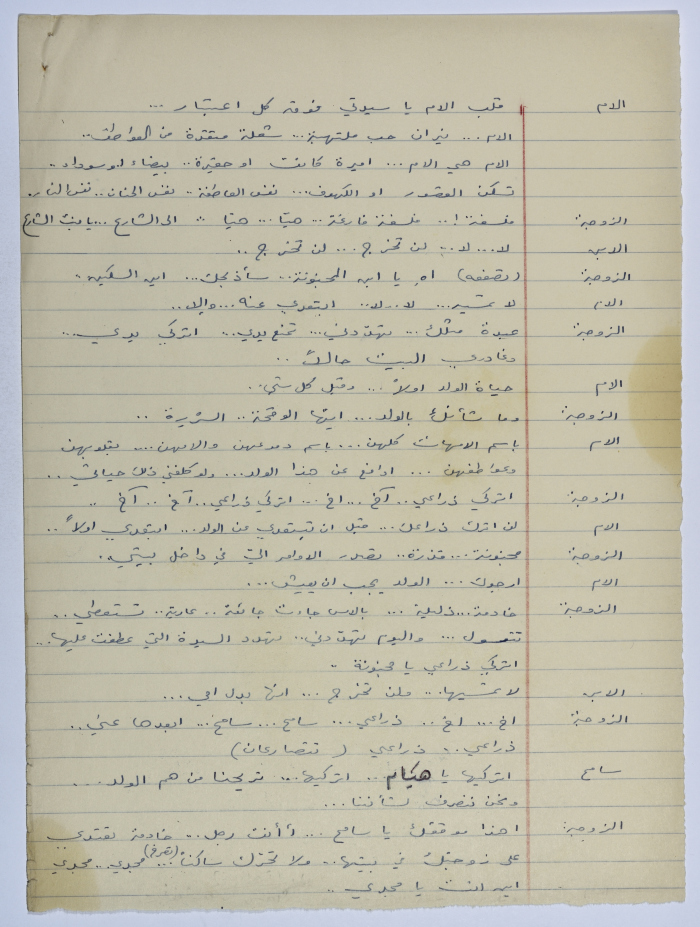 الام قلب الام يا سيدتي فوق كل اعتبار ...
الام ... نيران حب ملتهبة ... شعلة متقدة من العواطف ..
الام هي الام ... اميرة كانت او حقيرة .. بيضاء او سوداء ..
تسكن القصور او الكهوف ... نفس العاطفة .. نفس الحنان .. نفس النار.
الزوجة فلسفة ! .. فلسفة فارغة .. هيّا ... هيّا .. الى الشارع ... يا بنت الشارع
الابن لا ... لا .. لن تخرج ... لن تخرج ..
الزوجة (تصفعه) اهٍ يا ابن المجنونة .. سأذبحك ... اين السكين ..
الام لا .. لا .. ابتعدي عنه ... والا ..
الزوجة عبدة مثلك ... تهددني ... تمنع يدي ... اتركي يدي ...
وغادري البيت حالاً ..
الام حياة الولد اولاً ... وقبل كل شيء ..
الزوجة وما شأنك بالولد ... ايتها الوقحة .. الشريرة ..
الام باسم الامهات كلهن ... باسم دموعهن والامهن ... بقلوبهن
وعواطفهن ... ادافع عن هذا الولد ... ولو كلفني ذلك حياتي ..
الزوجة اتركي ذراعي .. آخ .. اخ ... اتركي ذراعي .. آخ .. آخ ..
الام لن اترك ذراعك ... قبل ان تبتعدي عن الولد ... ابتعدي اولاً ..
الزوجة مجنونة ... قذرة .. تصدر الاوامر اليّ في داخل بيتي ..
الام ارجوك ... الولد يجب ان يعيش ...
الزوجة خادمة ... ذليلة ... بالامس جاءت جائعة .. عارية .. تستعطي ..
تتسول ... واليوم تهددني .. تهدد السيدة التي عطفت عليها ...
اتركي ذراعي يا مجنونة ..
الابن لا تمسّيها ... ولن تخرج ... انها بدل امي ...
الزوجة اخ ... اخ .. ذراعي ... سامح ... سامح ... ابعدها عني ..
ذراعي .. ذراعي (تتصارعان)
سامح اتركيها يا هيام ... اتركيها ... تريحنا من هم الولد ....
ونحن ننصرف لشأننا ...
الزوجة اهذا موقفك يا سامح ... أأنت رجل .. خادمة تعتدي
على زوجتك في بيتها .. ولا تحرك ساكناً ... (تصرخ) مجدي .. مجدي
اين انت يا مجدي ..